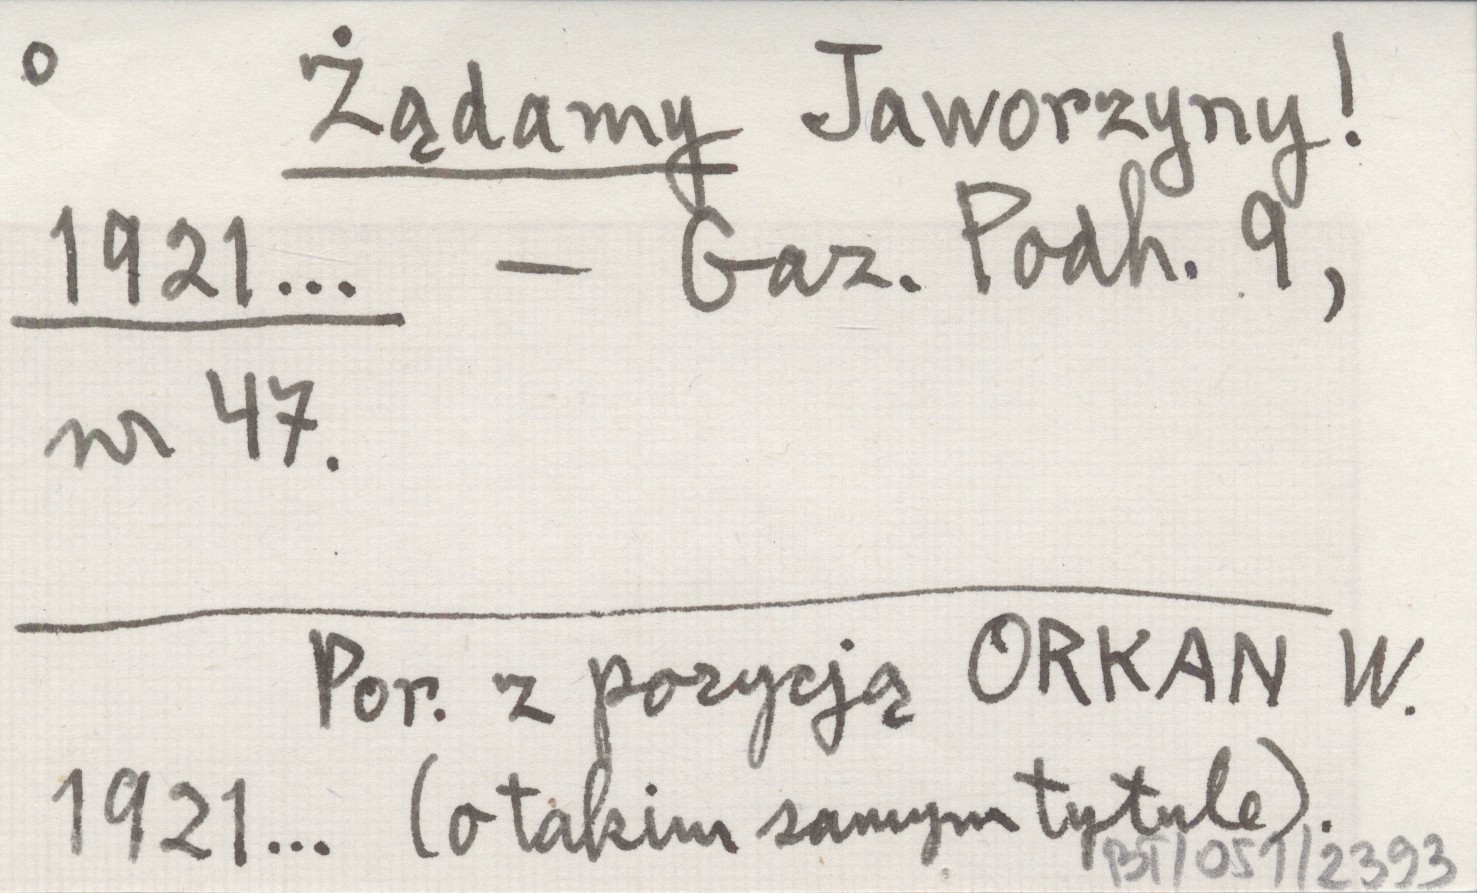 o Żądamy Jaworzyny!
1921... — Gaz. Podh. 9,
nr 47.
Por. z pozycją ORKAN W.
1921... (o takim samym tytule).
BT/051/2393